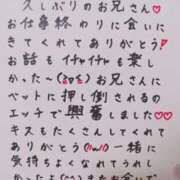 久しぶりのお兄さん♡
お仕事終わりに会いに
きてくれてありがとう!
お話もイチャイチャも楽し
かった〜 お兄さんに
ベットに押し倒されるの
エッチで興奮しました♡♡
キスもたくさんしてくれて
ありがとう 一緒に
気持ちよくなれてうれし